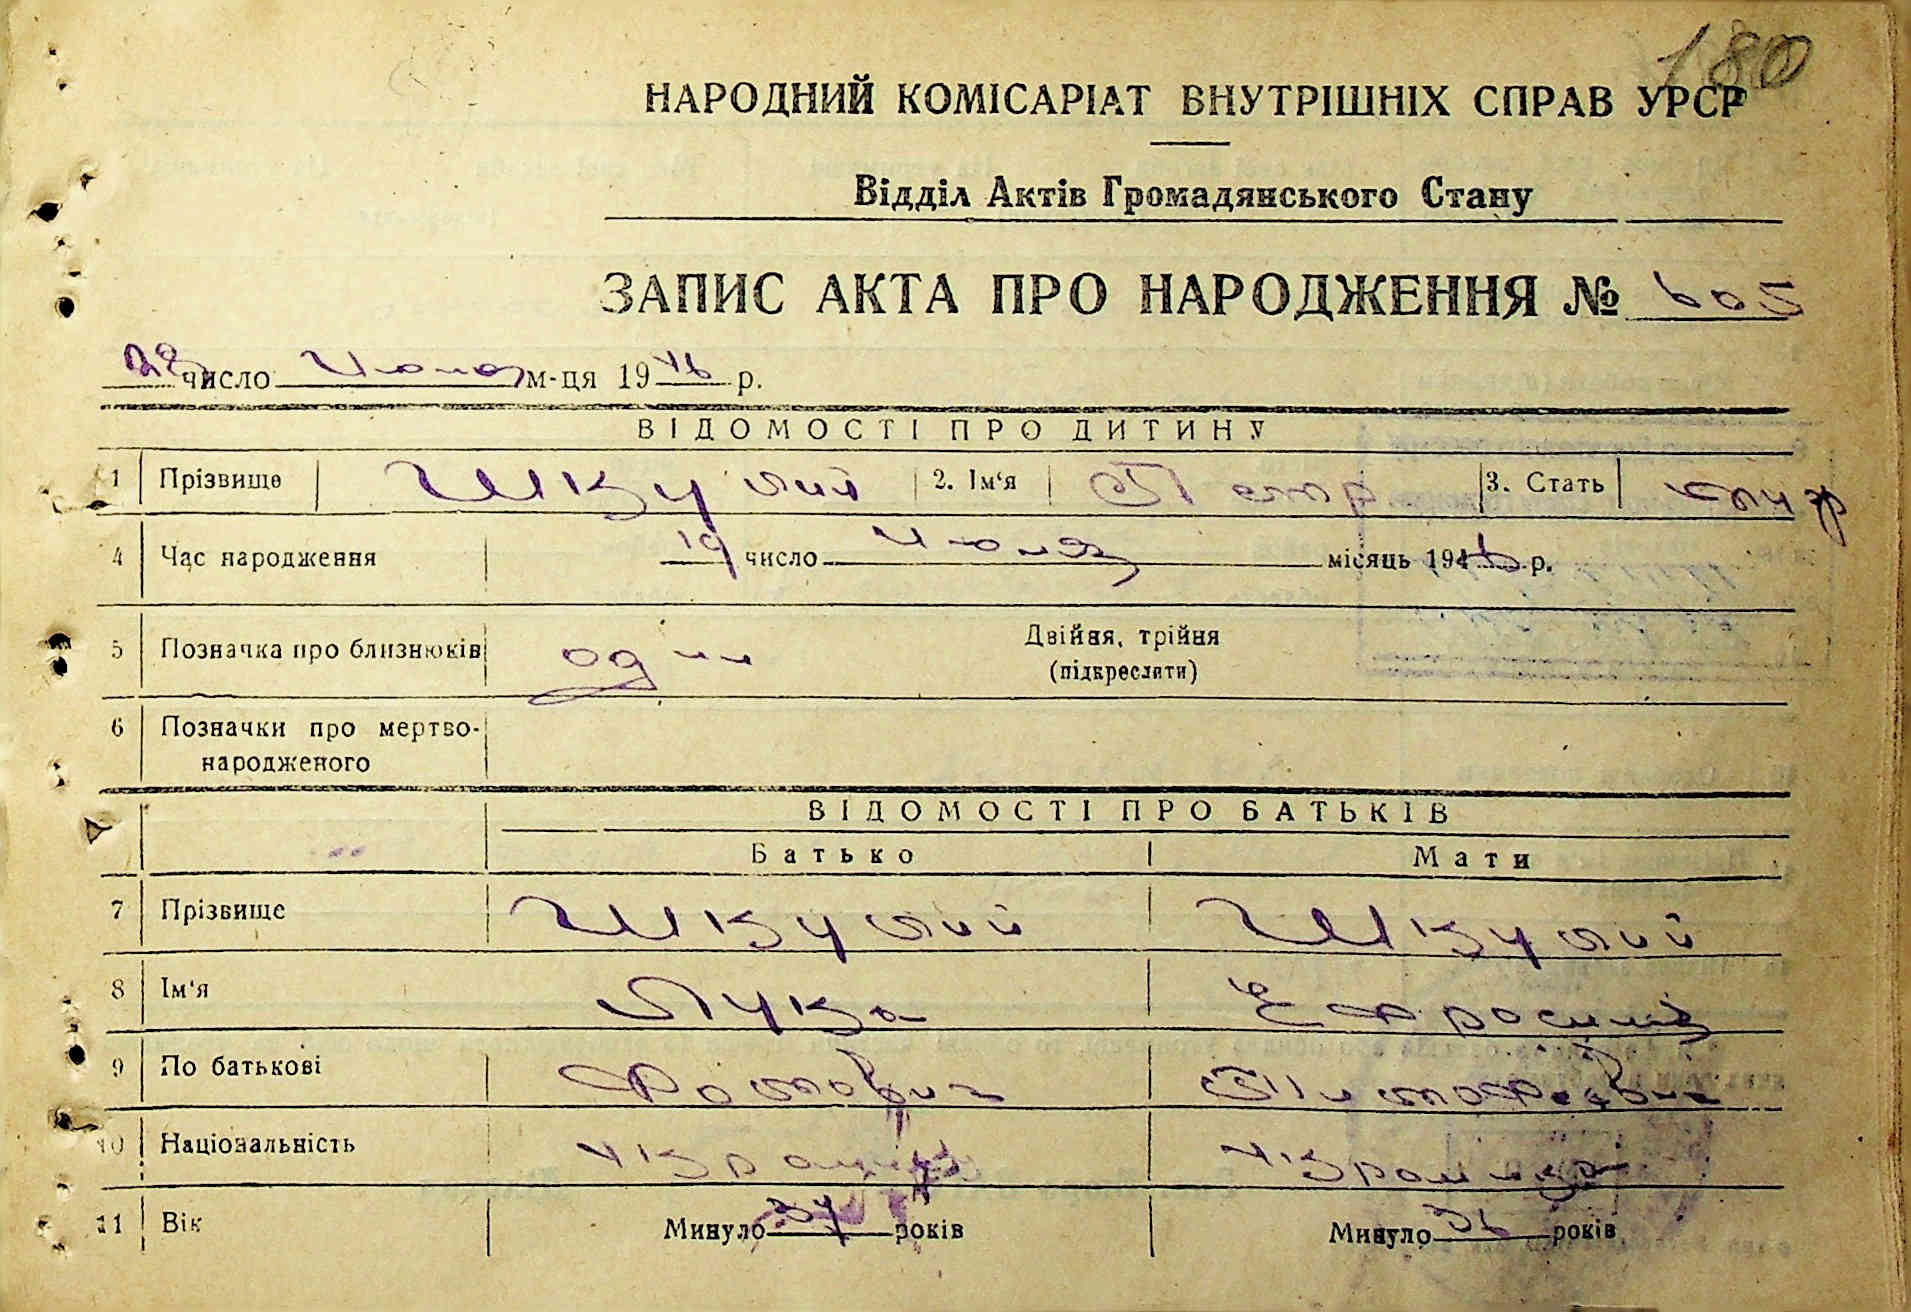 180
НАРОДНИЙ КОМІСАРІАТ ВНУТРІШНІХ СПРАВ УРСР
Відділ Актів Громадянського Стану
ЗАПИС АКТА ПРО НАРОДЖЕННЯ № 605
число Июля м-ця 1946 р.
ВІДОМОСТІ ПРО ДИТИНУ
1 Прізвище Шкулий 2. Ім'я Петр 3. Стать
4 Час народження 19 число Июля місяць 1946 р.
5 Позначка про близнюків один Двійня, трійня
(підкреслити)
6 Позначки про мертво-
народженого
ВІДОМОСТІ ПРО БАТЬКІВ
Батько Мати
7 Прізвище Шкулий Шкулий
8 Ім'я Лука Ефросиния
9 По батькові Фотович Тимофеевич
10 Національність
11 Вік Минуло 37 років Минуло 36 років